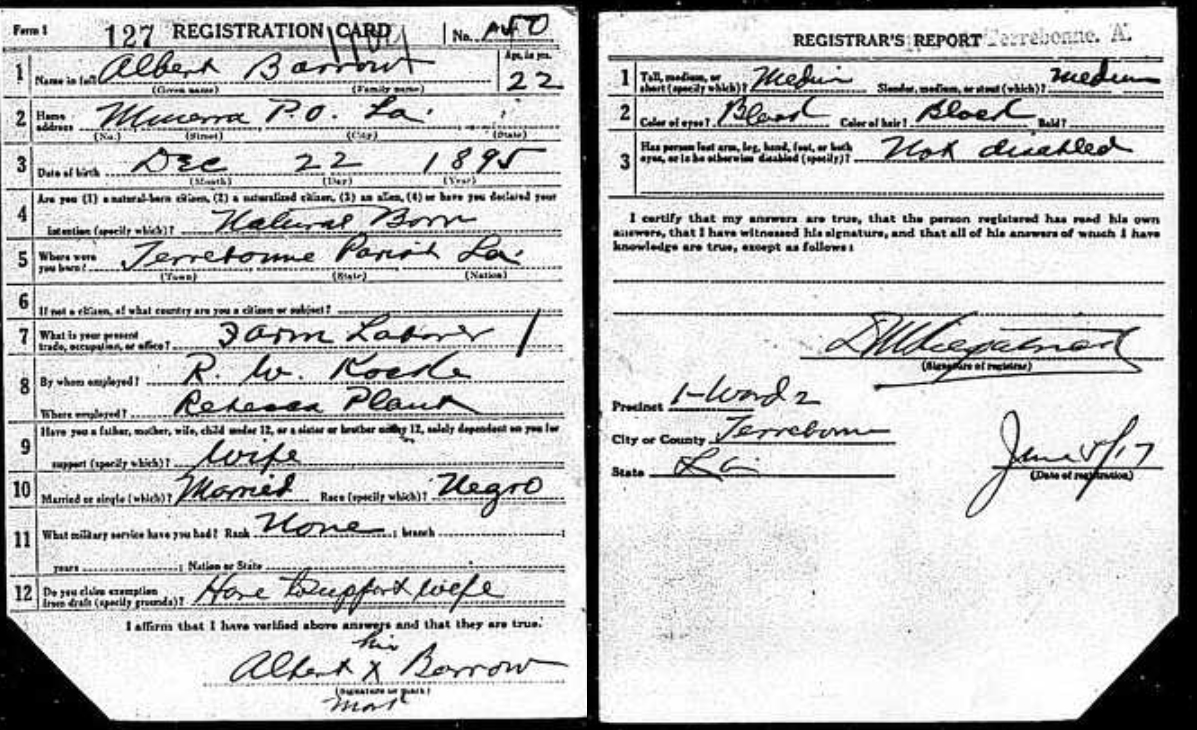 Form 1 127 REGISTRATION CARD No. 50
Age, in yrs.
1 Name in full Albert Barrow 22
(Given name) (Family name)
2 Home address Minerva P.O. La.
(No.) (Street) (City) (State)
3 Date of birth Dec 22 1895
(Month) (Day) (Year)
Are you (1) a natural-born citizen, (2) a naturalized citizen, (3) an alien, (4) or have you declared your
4 intention (specify which)? Natural Born
5 Where were you born? Terrebonne Parish La.
(Town) (State) (Nation)
6 If not a citizen, of what country are you a citizen or subject?
7 What is your present trade, occupation, or office? Farm Laborer
8 By whom employed? R. W.
Where employed? Rebecca Plant
Have you a father, mother, wife, child under 12, or a sister or brother under 12, solely dependent on you for
9 support (specify which)? Wife
10 Married or single (which)? Married Race (specify which)? Negro
11 What military service have you had? Rank None ; branch ;
years ; Nation or State
12 Do you claim exemption from draft (specify grounds)? Have to support wife
I affirm that I have verified above answers and that they are true.
his
Albert X Barrow
(Signature or mark)
mark
REGISTRAR'S REPORT Terrebonne. A.
1 Tall, medium, or short (specify which)? Medium Slender, medium, or stout (which)? medium
2 Color of eyes? Black Color of hair? Black Bald?
3 Has person lost arm, leg, hand, foot, or both eyes, or is he otherwise disabled (specify)? Not disabled
I certify that my answers are true, that the person registered has read his own
answers, that I have witnessed his signature, and that all of his answers of which I have
knowledge are true, except as follows:
(Signature of registrar)
Precinct 1-Ward 2
City or County Terrebonne
State La.
June 5/17
(Date of registration)